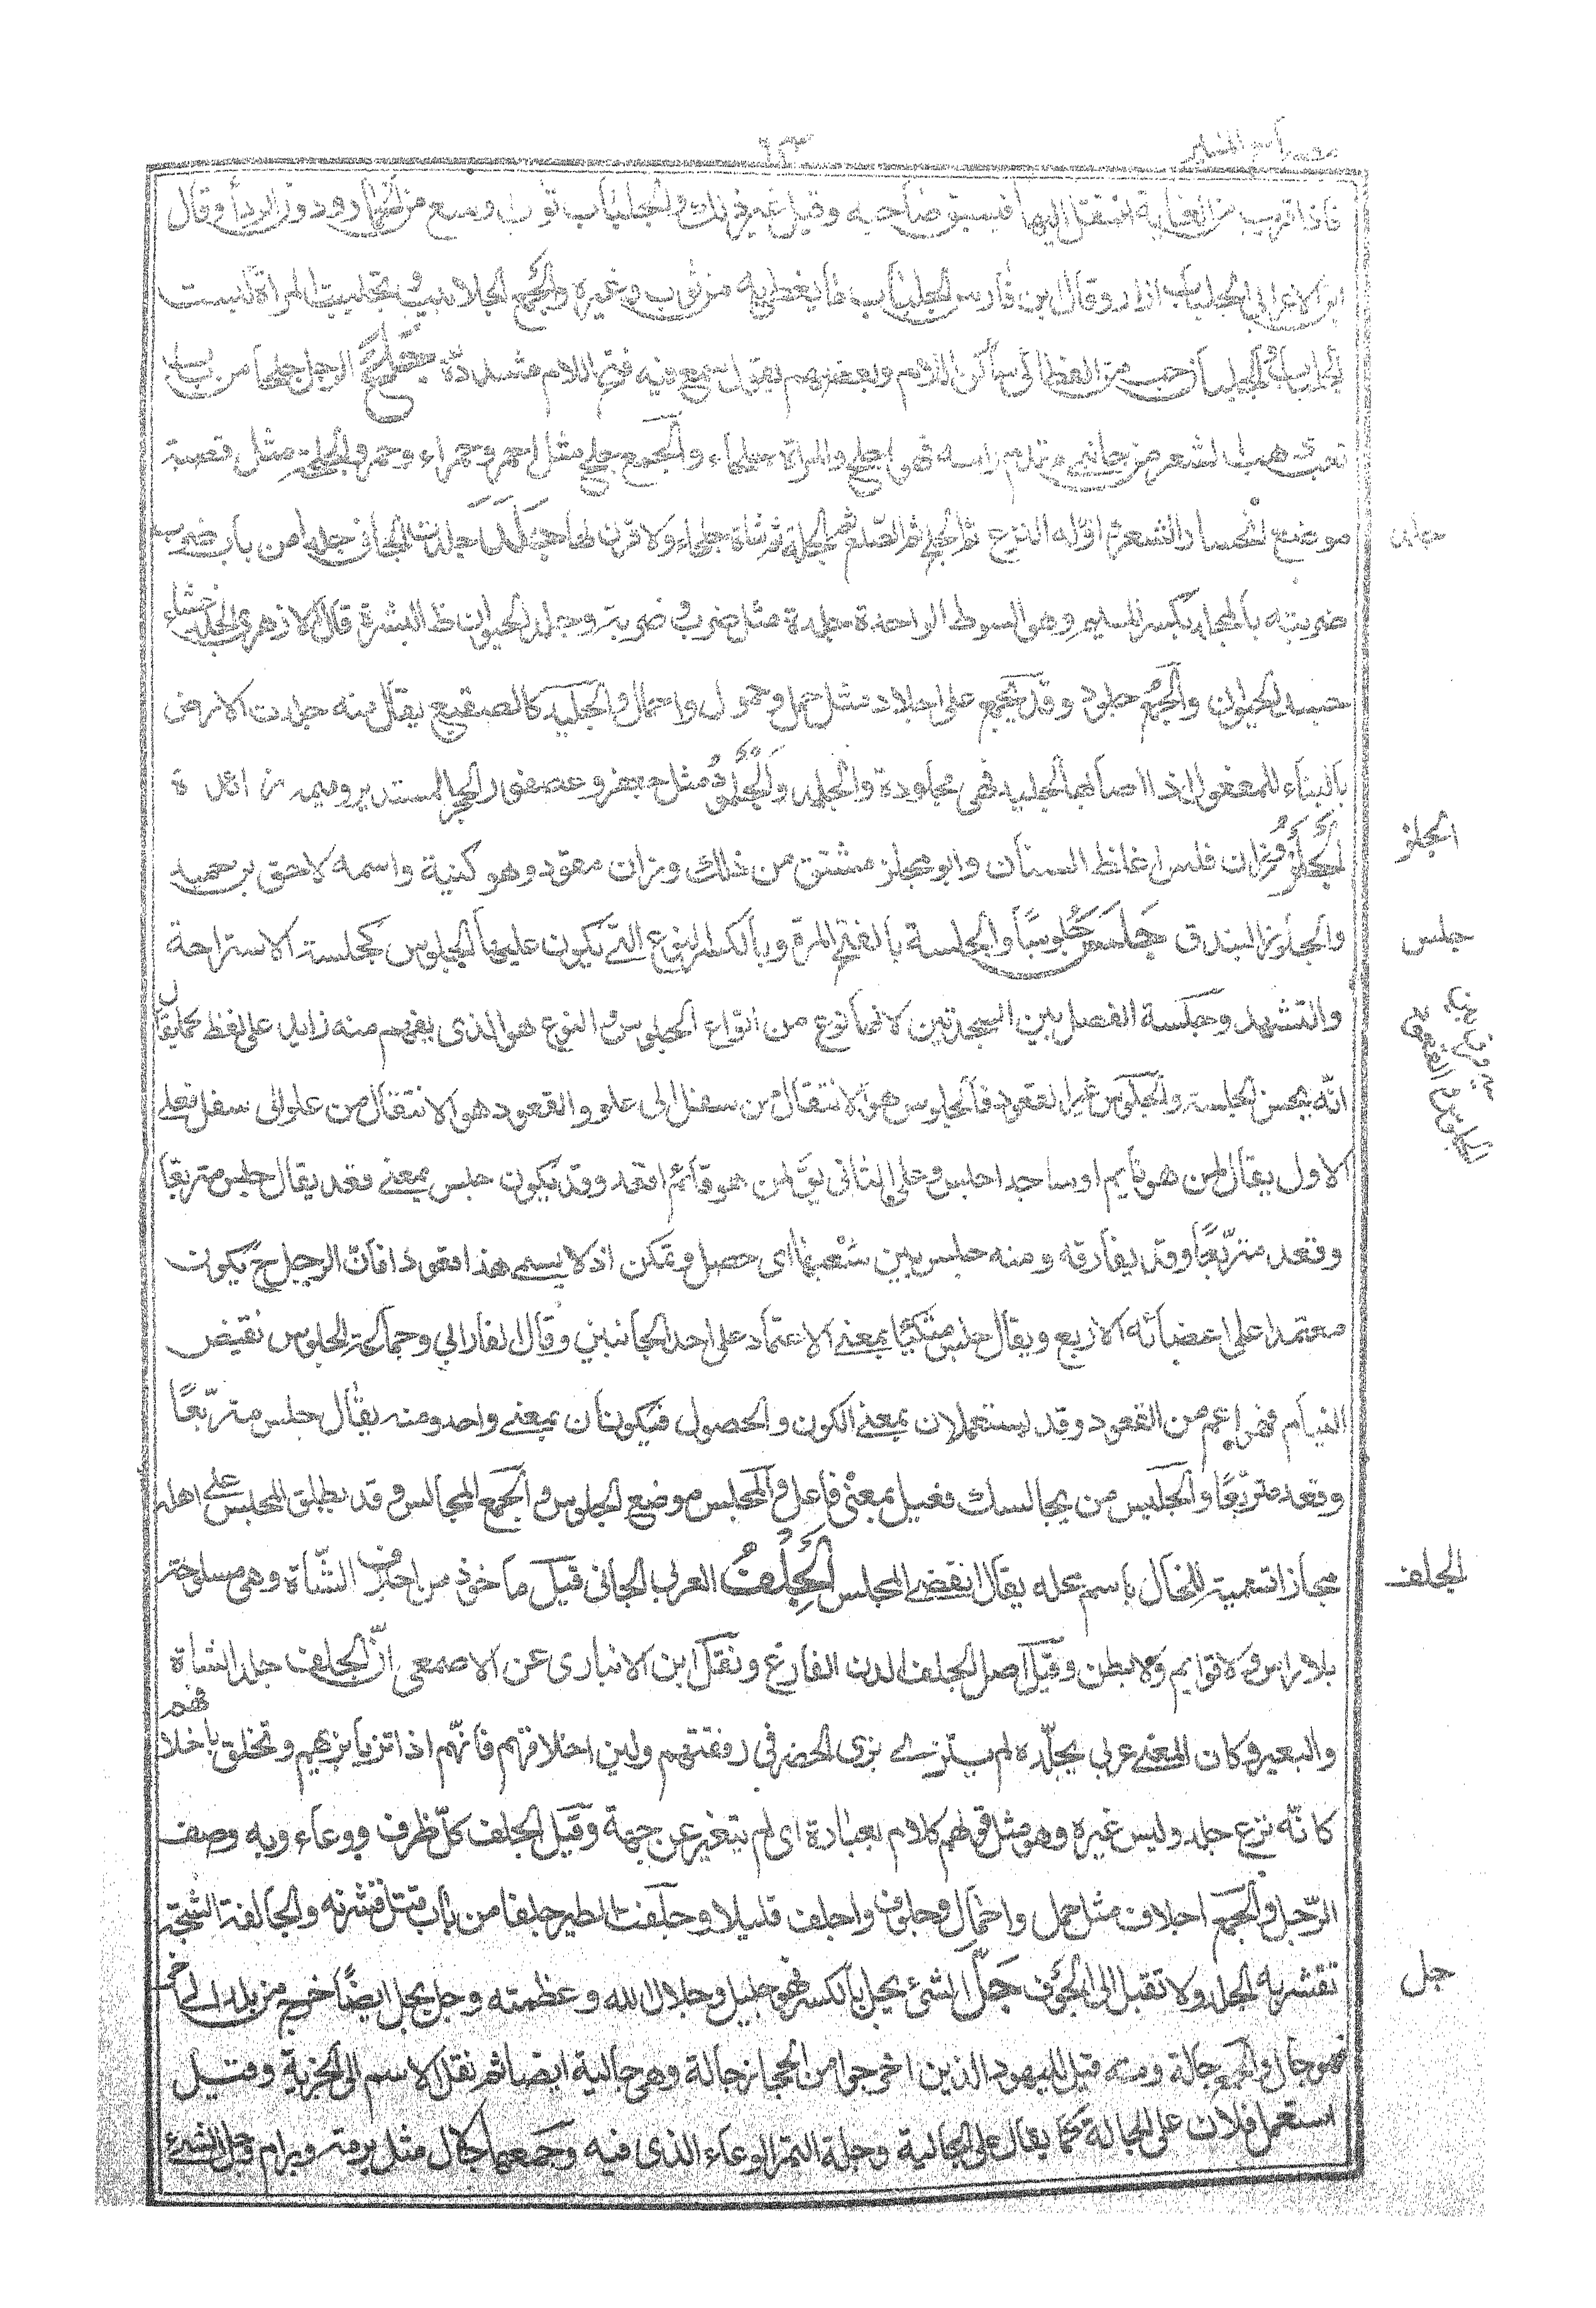 مصباح المنير
٦٣
فاذا قرب من الغاية انتقل اليها فيسبق صاحبه وقيل غير ذلك والجلباب ثوب اوسع من الخمار ودون الرداء وقال
ابن الاعرابي الجلباب الازار وقال ابن فارس الجلباب ما يغطى به من ثوب وغيره والجمع الجلابيب وتجلببت المراة لبست
الجلباب والجلبان حب من القطاني ساكن اللام وبعضهم يقول سمع فيه فتح اللام مشددة جلح الرجل جلحا من باب
تعب ذهب الشعر من جانبي مقدم راسه فهو اجلح والمراة جلحاء والجمع جلح مثل احمر وحمراء وحمر والجلحة مثل قصبة
موضع انحسار الشعر واوله النزع ثم الجلح ثم الصلع ثم الجله وشاة جلحاء لا قرن لها جلد جلدت الجاني جلدا من باب ضرب
جلد
ضربته بالمجلد بكسر الميم وهو السوط الواحدة جلدة مثل ضرب وضربة وجلد الحيوان ظاهر البشرة قال الازهري الجلد غشاء
جسد الحيوان والجمع جلود وقد يجمع على اجلاد مثل حمل وحمول واحمال والجليد كالصقيع يقال منه جلدت الارض
بالبناء للمفعول اذا اصابها الجليد فهي مجلودة والجلمد والجلمود مثل جعفر وعصفور الحجر المستدير وميمه زائدة
الجلز وزان فلس اغلظ السنان وابو مجلز مشتق من ذلك وزان مقود وهو كنية واسمه لاحق بن حميد
الجلز
والجلوز البندق جلس جلوسا والجلسة بالفتح المرة وبالكسر النوع التي يكون عليها الجلوس كجلسة الاستراحة
جلس
والتشهد وجلسة الفصل بين السجدتين لانها نوع من انواع الجلوس والنوع هو الذي يفهم منه زايد على لفظ كما يقال
انه يحسن الجلسة والجلوس غير القعود فالجلوس هو الانتقال من سفل الى علو والقعود هو الانتقال من علو الى سفل فعلى
الاول يقال لمن هو نايم او ساجد اجلس وعلى الثاني يق لمن هو قائم اقعد وقد يكون جلس بمعنى قعد يقال جلس متربعا
وقعد متربعا وقد يفارقه ومنه جلس بين شعبها اي حصل وتمكن اذ لا يسمى هذا قعودا فان الرجل ح يكون
معتمدا على اعضائه الاربع ويقال جلس متكئا بمعنى الاعتماد على احد الجانبين وقال الفارابي وجماعة الجلوس نقيض
القيام فهو اعم من القعود وقد يستعملان بمعنى الكون والحصول فيكونان بمعنى واحد ومنه يقال جلس متربعا
وقعد متربعا والجليس من يجالسك فعيل بمعنى فاعل والمجلس موضع الجلوس والجمع المجالس وقد يطلق المجلس على اهله
مجازا تسمية للحال باسم محله يقال انقض المجلس الجلف العربي الجافي قيل ماخوذ من اجلاف الشاة وهي مسلوخة
الجلف
بلا راس ولا قوايم ولا بطن وقيل اصل الجلف الدن الفارغ ونقل ابن الانباري عن الاصمعي ان الجلف جلد الشاة
والبعير وكان المعنى عربي بجلده لم يتزي بزي الحضر في رقتهم ولين اخلاقهم فانهم اذا تزيا بزيهم وتخلق باخلاقهم
كانه نزع جلده ولبس غيره وهو مثل قولهم كلام بعبارة اي لم يتغير عن جهة وقيل الجلف كل ظرف ووعاء وبه وصف
الرجل والجمع اجلاف مثل حمل واحمال وجلوف واجلف قليلا وجلفت الطير جلفا من باب قتل قشرته والجالفة الشجة
تقشر به الجلد ولا تقبل الى الجوف جل الشئ يجل بالكسر فهو جليل وجلال الله وعظمته وجل يجل ايضا خرج من بلد الى اخر
جل
فهو جال والجمع جالة ومنه قيل لليهود الذين اخرجوا من الحجاز جالة وهي جالية ايضا ثم نقل الاسم الى الجزية وقيل
استعمل فلان على الجالة كما يقال على الجالية وجلة التمر الوعاء الذي فيه وجمعها جلال مثل برمة وبرام وجل الشئ